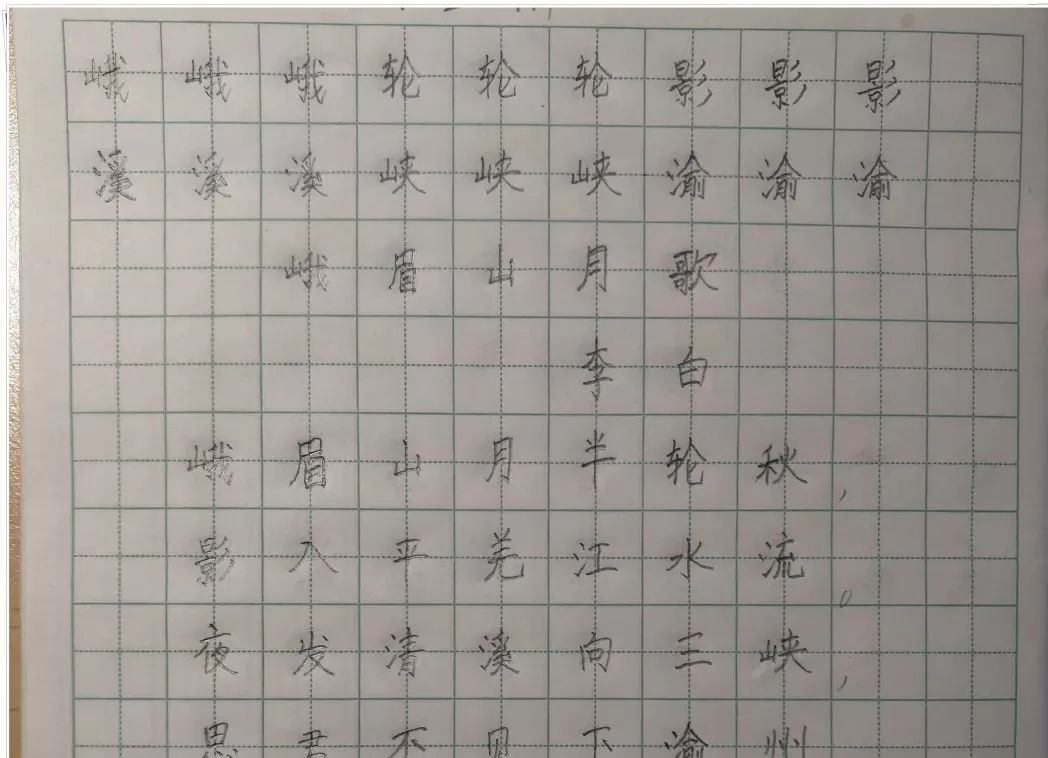 峨峨峨轮轮轮影影影
溪溪溪峡峡峡渝渝渝
峨眉山月歌
李白
峨眉山月半轮秋，
影入平羌江水流。
夜发清溪向三峡，
思君不见下渝州